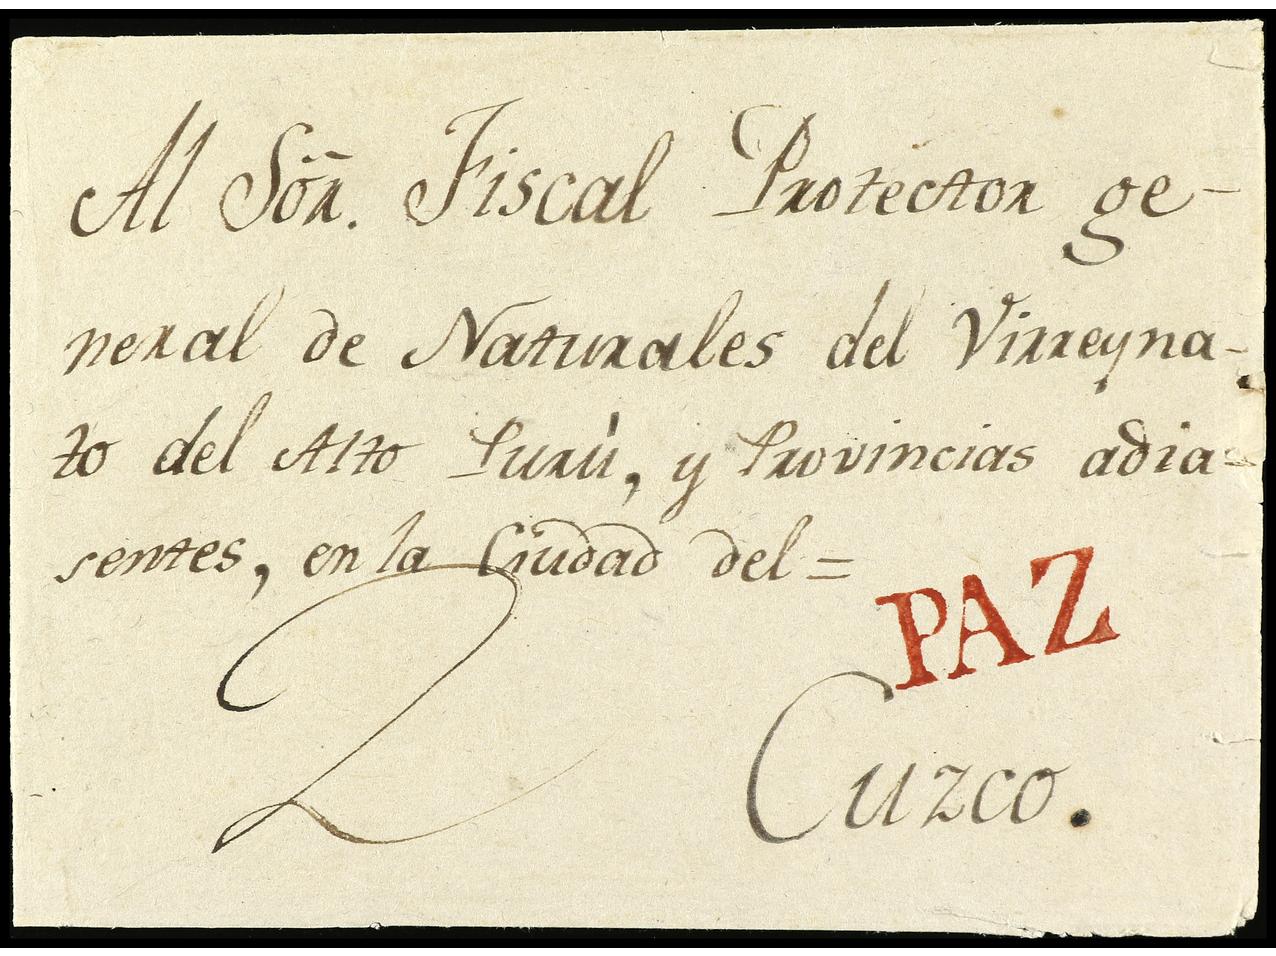 Al Señor. Fiscal Protector ge-
neral de Naturales del Virreyna-
to del Alto Purú, y Provincias adia-
sentes, en la Ciudad del =
PAZ
2
Cuzco.